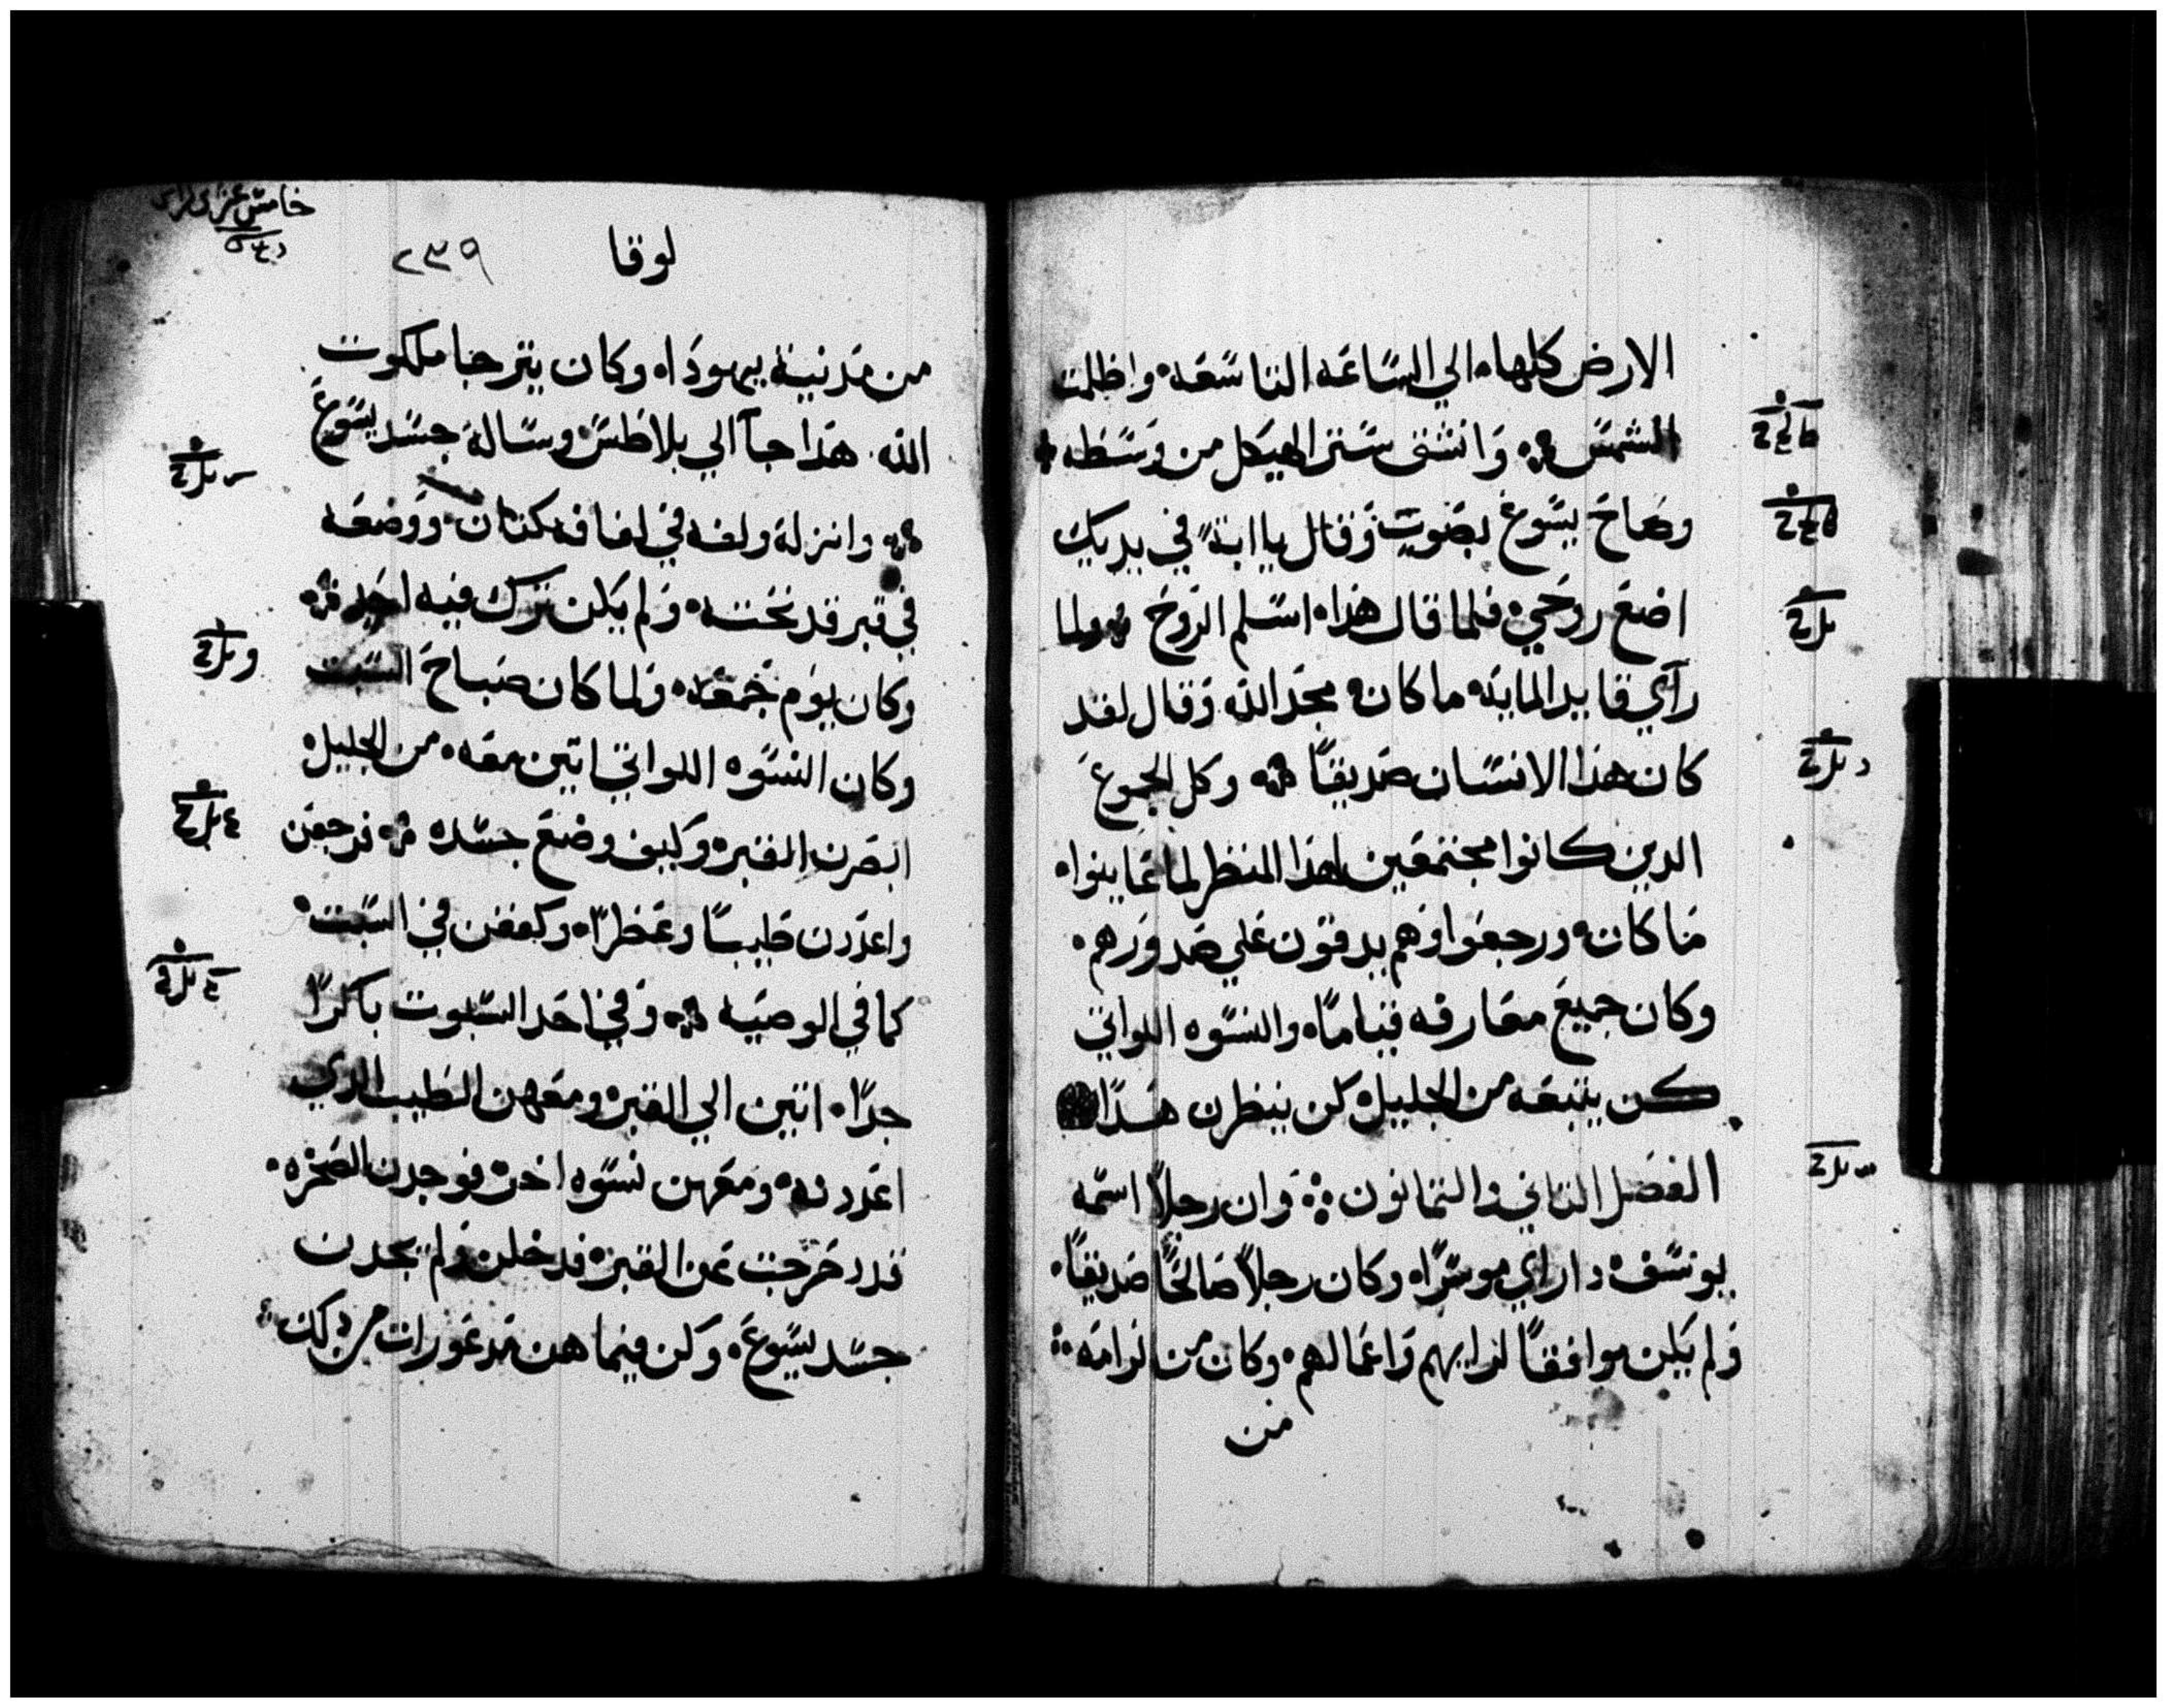 الارض كلها، الي الساعه التاسعه، واظلمت
الشمس ۞ وانشق ستر الهيكل من وسطه
وصاح يسوع بصوتٍ وقال يا ابتهِ في يديك
اضع روحي، فلما قال هذا، اسلم الروح ۞ ولما
رآي قايد المايه ما كان، مجد الله وقال لقد
كان هذا الانسان صديقًا ۞ وكل الجموع
الدين كانوا مجتمعين لهذا المنظر لما عاينوا،
ما كان، ورجعوا وهم يدقون علي صدورهم،
وكان جميع معارفه قيامًا، والنسوه اللواتي
كن يتبعه من الجليل، كن ينظرن هذا
الفصل التاني والتمانون ۞ وان رجلًا اسمه
يوسف، دا راي موسرًا، وكان رجلًا صالحًا صديقًا،
ولم يكن موافقًا لرايهم واعمالهم، وكان من لرامه
من
لوقا
٢٣٩
من مدينة يهودا، وكان يترجا ملكوت
الله، هذا جآ الي بلاطس وساله جسد يسوع
۞ وانزله ولفه في لفافه كتان، ووضعه
في قبر قد نحته، ولم يكن ترك فيه احد ۞
وكان يوم جمعه، ولما كان صباح السبت
وكان النسوه اللواتي اتين معه، من الجليل
ابصرن القبر، وكيف وضع جسده ۞ فرجعن
واعددن طيبًا وعطرًا، وكففن في السبت،
كما في الوصيه ۞ وفي احد السبوت باكرًا
جدًا، اتين الي القبر، ومعهن الطيب الدي
اعددنه، ومعهن نسوه اخر، فوجدن الصخره،
قد دحرجت عن القبر، فدخلن ولم يجدن
جسد يسوع، وكن فيما هن مدعورات من دلك